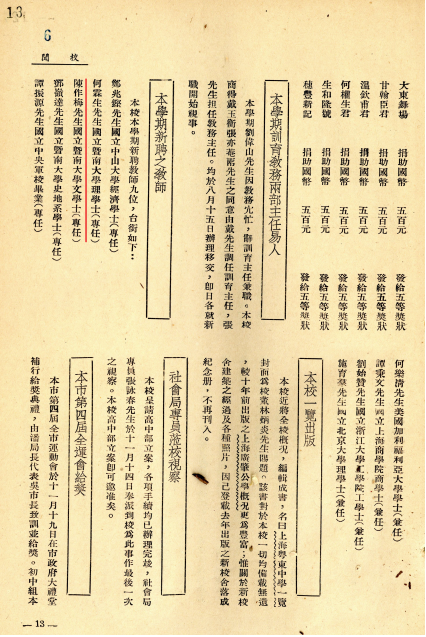 13
6
校聞
大東縣場　捐助國幣　五百元　發給五等獎狀
甘翰臣君　捐助國幣　五百元　發給五等獎狀
溫欽甫君　捐助國幣　五百元　發給五等獎狀
何權生君　捐助國幣　五百元　發給五等獎狀
生和隆號　捐助國幣　五百元　發給五等獎狀
穗豐新記　捐助國幣　五百元　發給五等獎狀
本學期訓育教務兩部主任易人
本學期劉偉山先生因教務冗忙，辭訓育主任兼職。本校
商得戴玉衡張亦菴兩先生之同意由戴先生調任訓育主任，張
先生担任教務主任。均於八月十五日辦理移交，卽日各就新
職開始視事。
本學期新聘之教師
本校本學期新聘教師九位，台銜如下：
鄭兆鏗先生國立中山大學經濟學士（專任）
何霖生先生國立暨南大學理學士（專任）
陳作梅先生國立暨南大學文學士（專任）
鄧嶺達先生國立暨南大學史地系學士（專任）
譚振源先生國立中央軍校畢業（專任）
何樂清先生美國加利福利亞大學學士（兼任）
譚秉文先生國立上海商學院商學士（兼任）
劉始贊先生國立浙江大學學院工學士（兼任）
施育羣先生國立北京大學理學士（兼任）
本校一覽出版
本校近將全校概況，編輯成書，名曰上海粤東中學一覽
封面爲校董林炳炎先生所題。該書對於本校一切均備載無遺
，較十年前出版之上海廣肇公學概況更爲豐富；惟關於新校
舍建築之經過及各種照片，因已登載去年出版之新校舍落成
紀念册，不再刊入。
社會局專員蒞校視察
本校呈請高中部立案，各項手續均已辦理完竣，社會局
專員張詠春先生於十一月十四日奉派到校爲此事作最後一次
之視察。本校高中部立案卽可邀准矣。
本市第四屆全運會給獎
本市第四屆全市運動會於十一月十九日在市政府大禮堂
補行給獎典禮，由潘局長代表吳市長致訓並給獎。初中組本
— 13 —